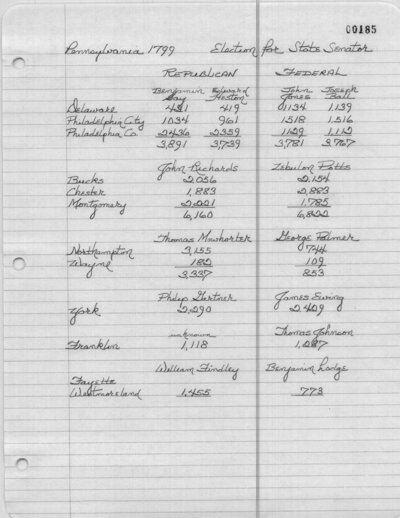 00185
Pennsylvania 1799 Election for State Senator
REPUBLICAN FEDERAL
Benjamin Edward John Joseph
Say Heston Jones Ball
Delaware 421 419 1134 1139
Philadelphia City 1034 961 1518 1516
Philadelphia Co. 2436 2359 1129 1112
3,891 3,739 3,781 3,767
John Richards Zebulon Potts
Bucks 2,056 2,154
Chester 1,883 2,883
Montgomery 2,221 1,785
6,160 6,822
Thomas Mewhorter George Palmer
Northampton 3,155 744
Wayne 182 109
3,337 853
Philip Gartner James Ewing
York 2,290
unknown Thomas Johnson
Franklin 1,118
William Findley Benjamin Lodge
Fayette
Westmoreland 1,455 773